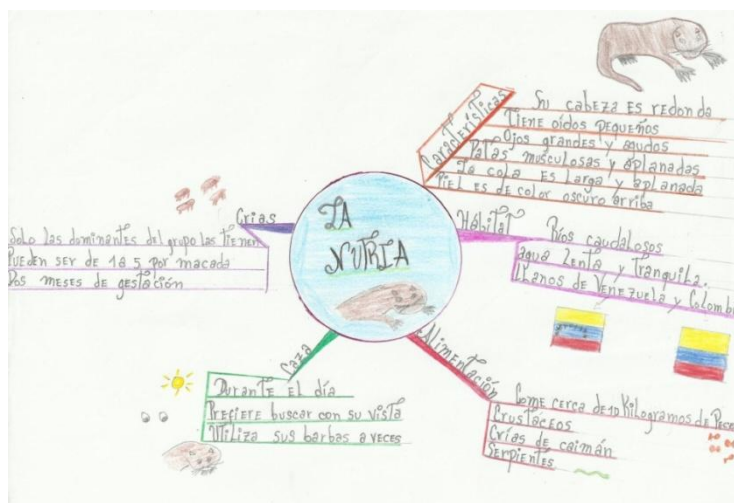 LA
NUTRIA
Características
Su cabeza es redonda
Tiene oídos pequeños
Ojos grandes y agudos
Patas musculosas y aplanadas
La cola es larga y aplanada
Piel es de color oscuro arriba
Hábitat
Ríos caudalosos
agua lenta y tranquila.
Llanos de Venezuela y Colomb
Alimentación
Come cerca de 10 Kilogramos de Pesc
Crustáceos
Crías de caimán
Serpientes
Caza
Durante el día
Prefiere buscar con su vista
Utiliza sus barbas a veces
Crias
Solo las dominantes del grupo las tienen
Pueden ser de 1 a 5 por macada
Dos meses de gestación